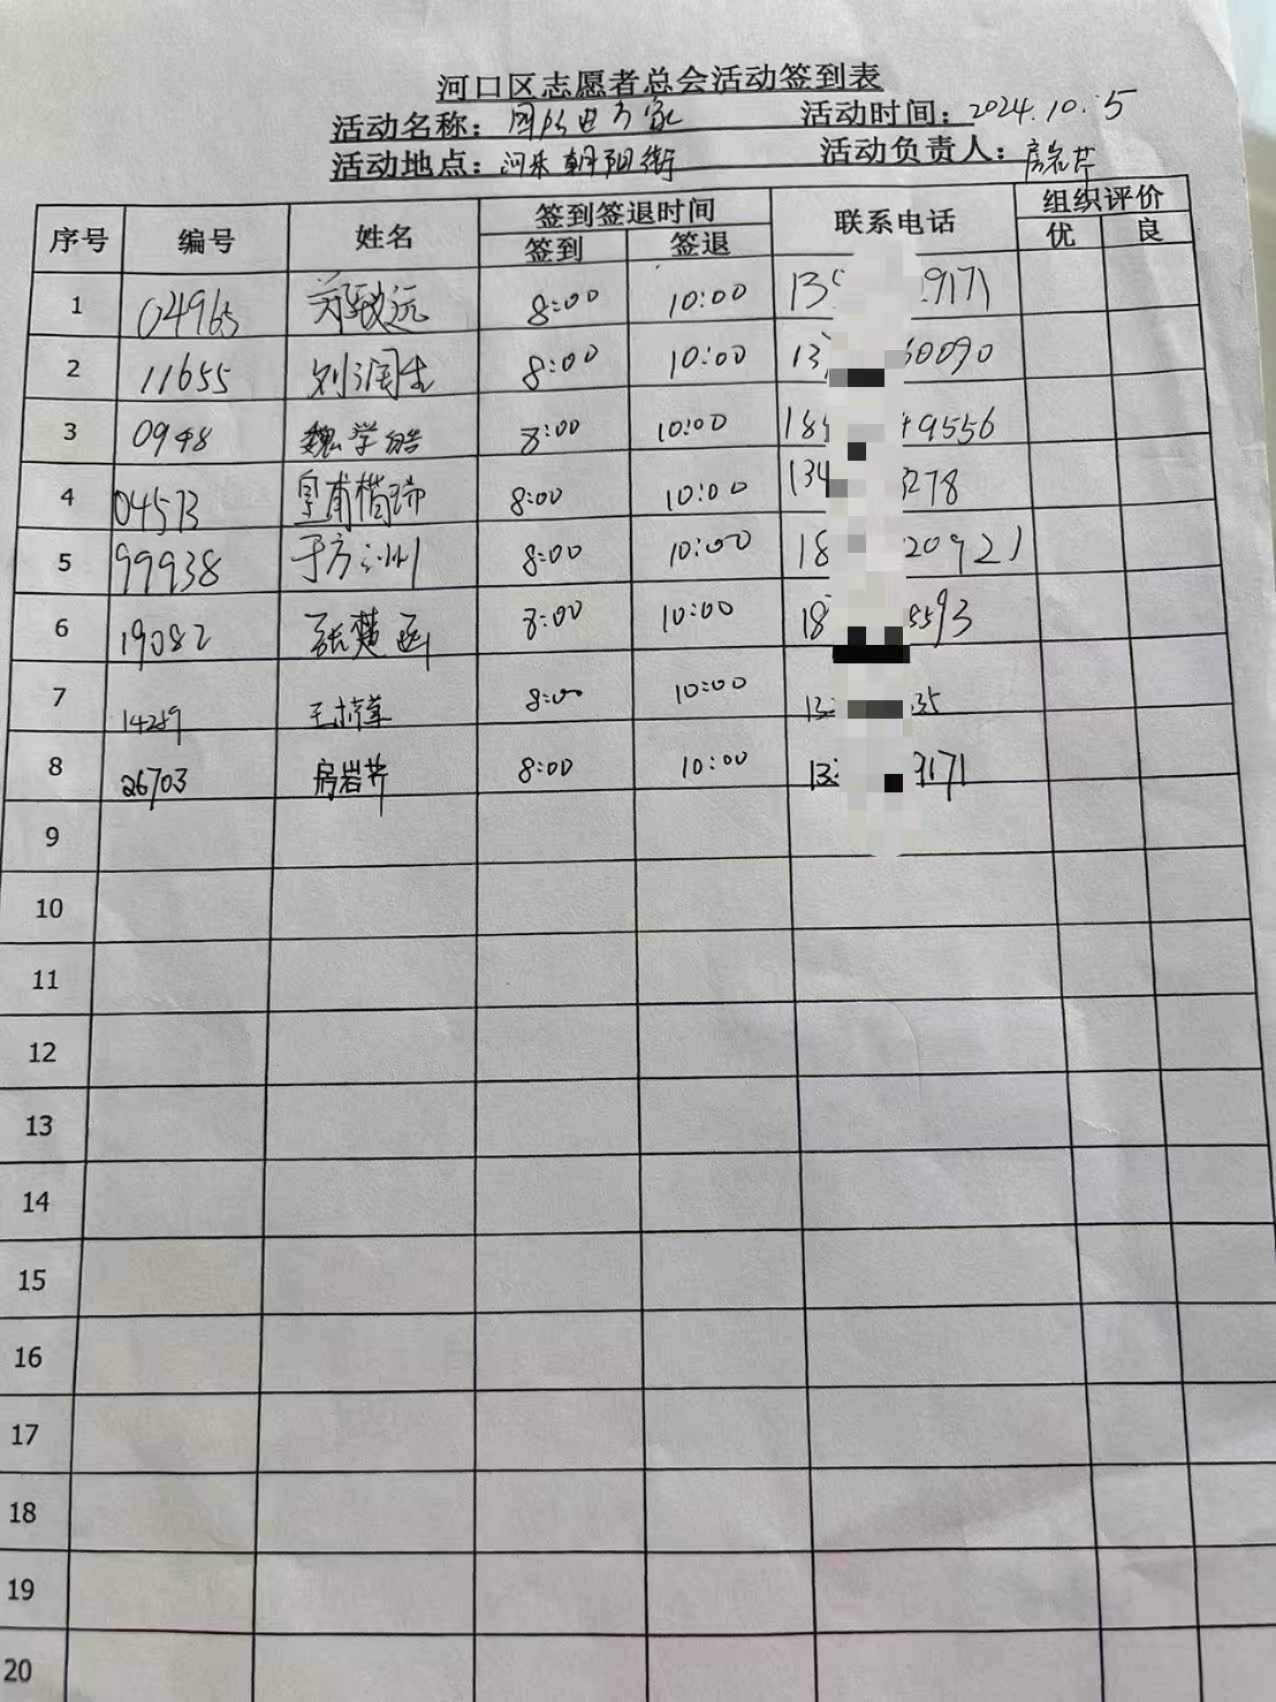 河口区志愿者总会活动签到表
活动名称：团队进万家 活动时间：2024.10.5
活动地点：河东朝阳街 活动负责人：房岩芹
序号 编号 姓名 签到签退时间 联系电话 组织评价
签到 签退 优 良
1 04965 郑致远 8:00 10:00 9171
2 11655 刘润生 8:00 10:00 13 60090
3 0948 魏学皓 8:00 10:00 18 49556
4 04573 皇甫楷瑞 8:00 10:00 134 278
5 99938 于方洲 8:00 10:00 18 20921
6 19082 张楚函 8:00 10:00 18 593
7 14259 8:00 10:00 13 35
8 26703 房岩芹 8:00 10:00 13 9171
9
10
11
12
13
14
15
16
17
18
19
20